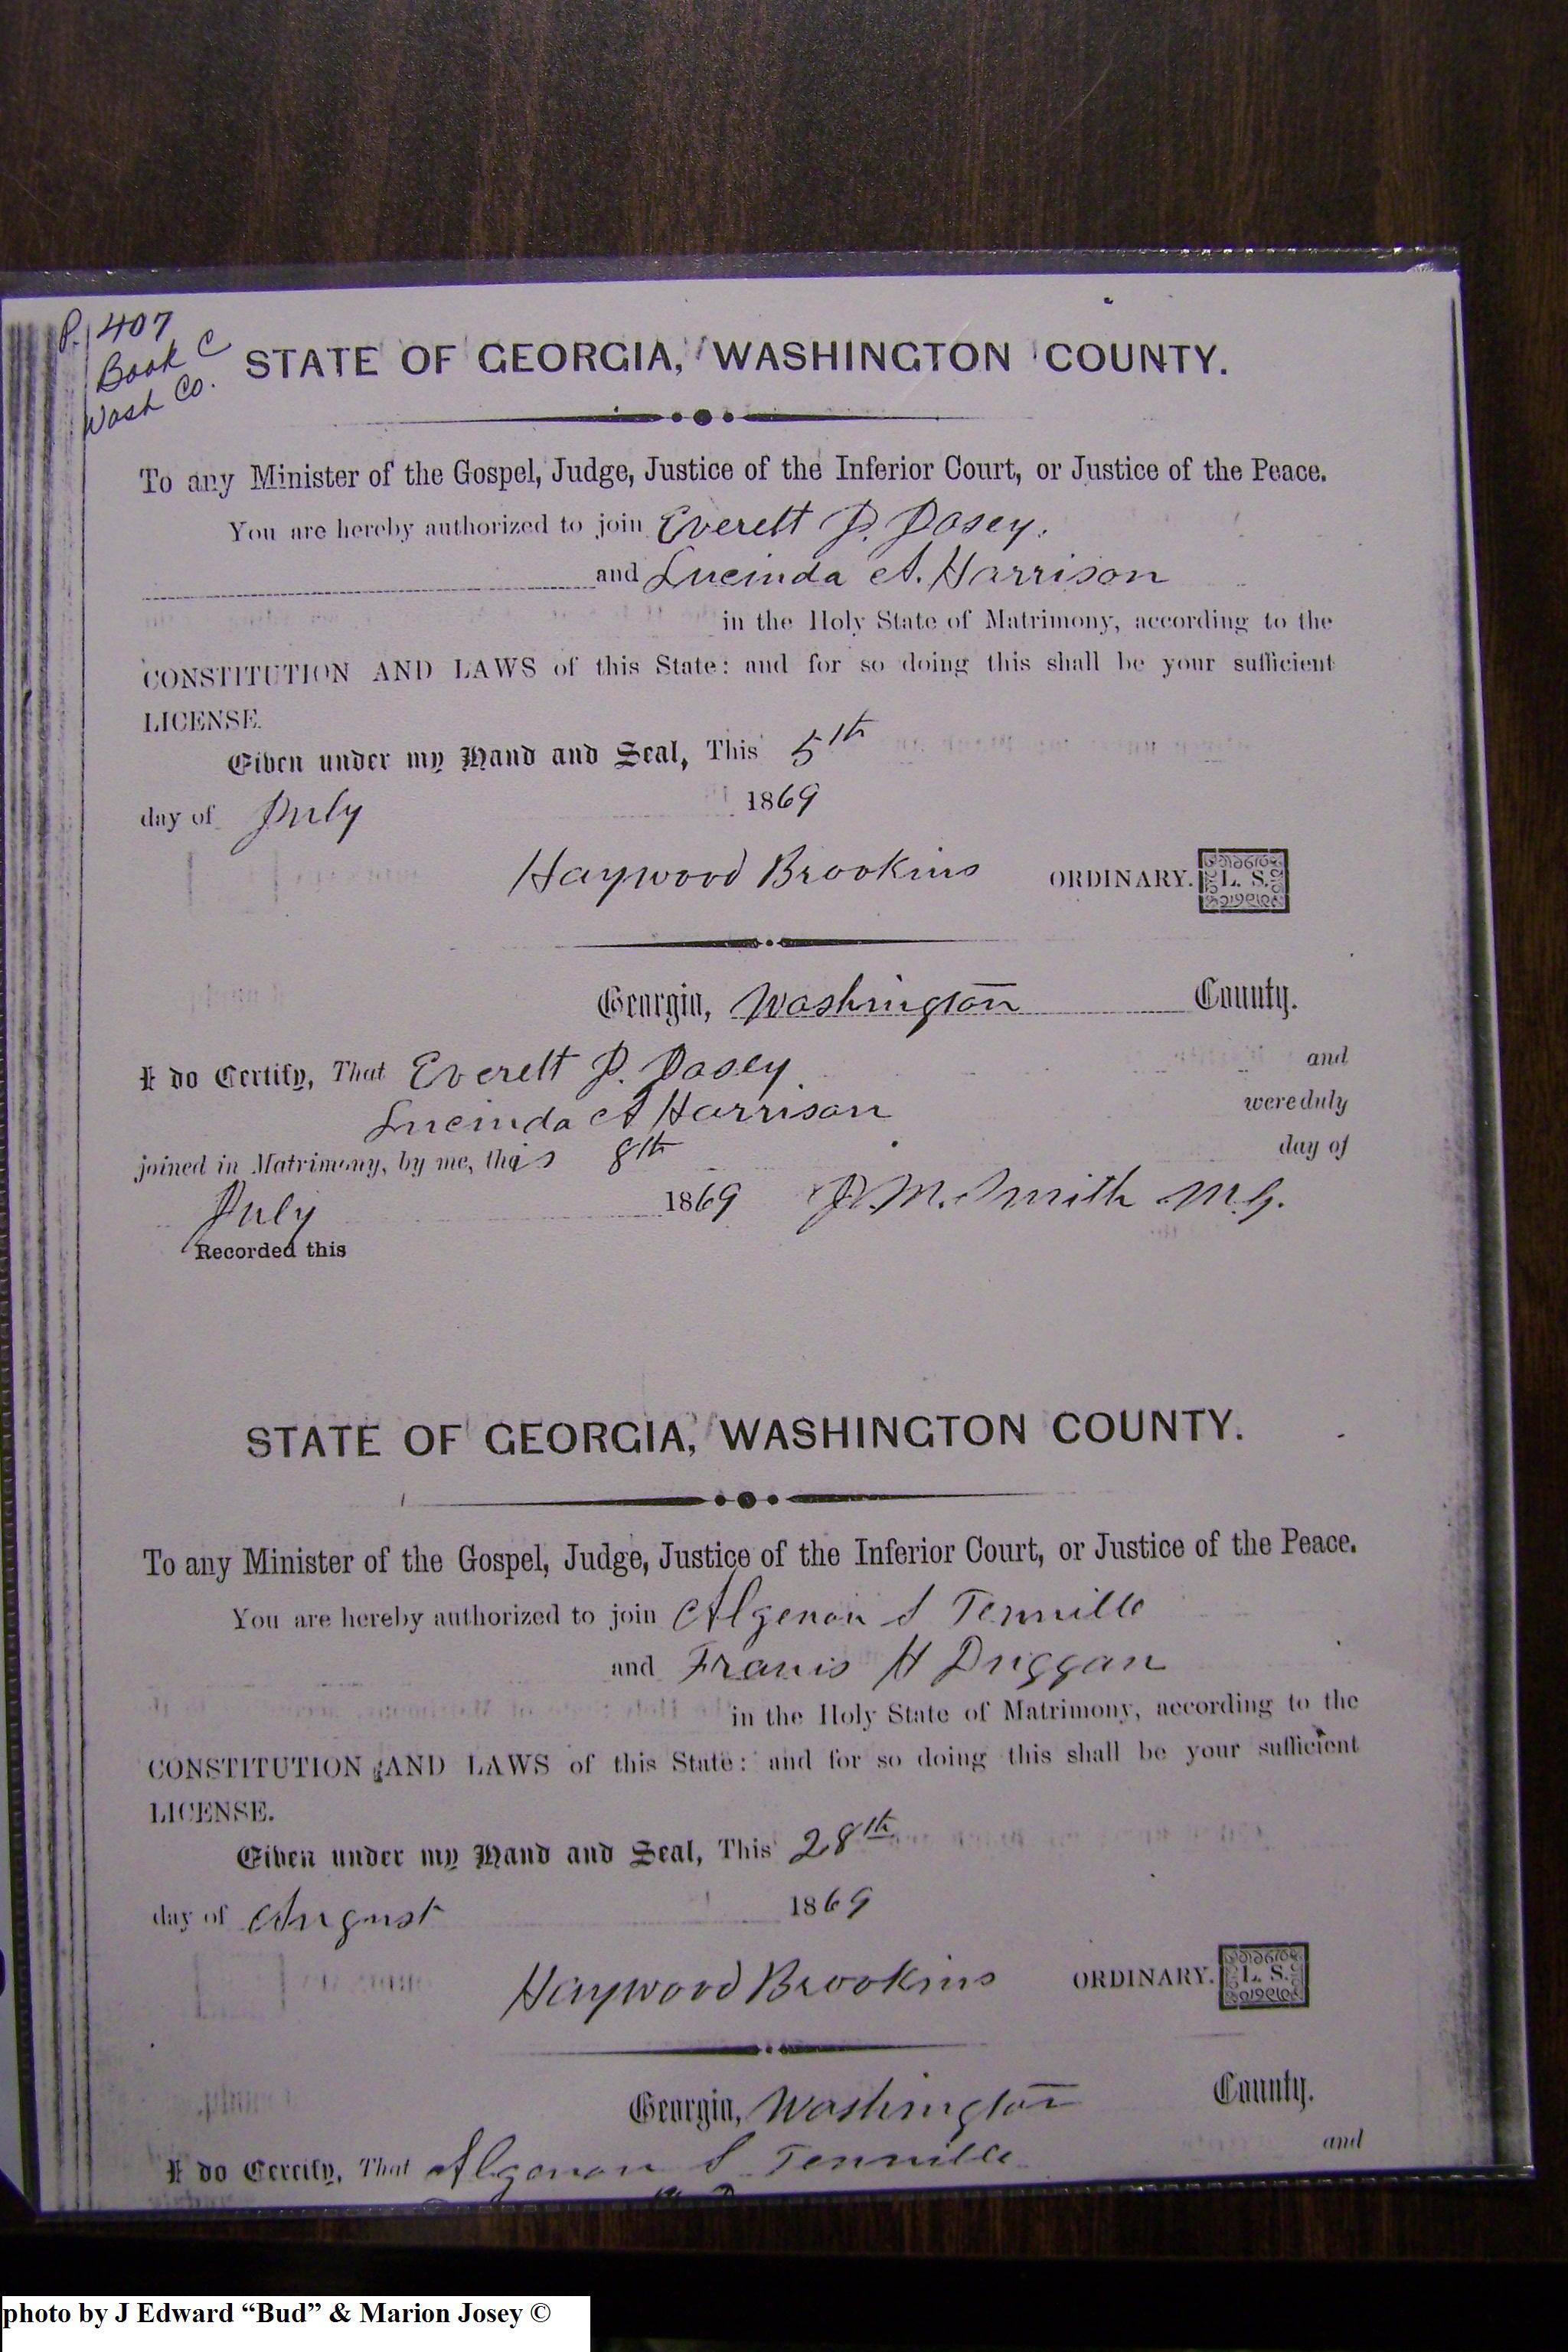 P. 407
Book C
Wash Co.
STATE OF GEORGIA, WASHINGTON COUNTY.
To any Minister of the Gospel, Judge, Justice of the Inferior Court, or Justice of the Peace.
You are hereby authorized to join Everett J. Josey.
and Lucinda A. Harrison
in the Holy State of Matrimony, according to the
CONSTITUTION AND LAWS of this State: and for so doing this shall be your sufficient
LICENSE.
Given under my Hand and Seal, This 5th
day of July 1869
Haywood Brookins ORDINARY. L. S.
Georgia, Washington County.
I do Certify, That Everett J. Josey and
Lucinda A Harrison were duly
joined in Matrimony, by me, this 8th day of
July 1869 J. M. Smith M.G.
Recorded this
STATE OF GEORGIA, WASHINGTON COUNTY.
To any Minister of the Gospel, Judge, Justice of the Inferior Court, or Justice of the Peace.
You are hereby authorized to join Algenon S Tennille
and Francis H Duggan
in the Holy State of Matrimony, according to the
CONSTITUTION AND LAWS of this State: and for so doing this shall be your sufficient
LICENSE.
Given under my Hand and Seal, This 28th
day of August 1869
Haywood Brookins ORDINARY. L. S.
Georgia, Washington County.
I do Certify, That Algenon S Tennille and
photo by J Edward “Bud” & Marion Josey ©